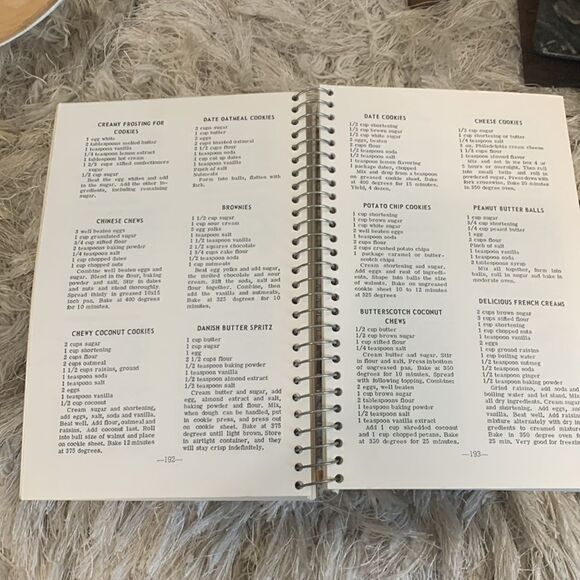 CREAMY FROSTING FOR
COOKIES
1 egg white
2 tablespoons melted butter
1 teaspoon vanilla
1/4 teaspoon lemon extract
1 tablespoon hot cream
2 2/3 cups confectioners
sugar
1/2 cup sugar
Beat the egg whites and add
in the sugar. Add the other in-
gredients, including remaining
sugar.
CHINESE CHEWS
2 well beaten eggs
1 cup granulated sugar
3/4 cup sifted flour
2 teaspoons baking powder
1/4 teaspoon salt
1 cup chopped dates
1 cup chopped nuts
Combine well beaten eggs and
sugar. Blend in the flour, baking
powder and salt. Stir in dates
and nuts and blend thoroughly.
Spread thinly in greased 10x15
inch pan. Bake at 400 degrees
for 10 minutes.
CHEWY COCONUT COOKIES
2 cups sugar
1 cup shortening
2 cups flour
2 cups oatmeal
1 1/2 cups raisins, ground
1 teaspoon soda
1 teaspoon salt
2 eggs
1 teaspoon vanilla
1/2 cup coconut
Cream sugar and shortening,
add eggs, salt, soda and vanilla.
Beat well. Add flour, oatmeal and
raisins. Add coconut last. Roll
into ball size of walnut and place
on cookie sheet. Bake 12 minutes
at 375 degrees.
DATE OATMEAL COOKIES
2 cups sugar
1 cup butter
2 eggs
2 cups toasted oatmeal
2 1/2 cups flour
1 teaspoon soda
1 cup cut up dates
1 teaspoon vanilla
Pinch of salt
Nutmeats
Form into balls, flatten with
fork.
BROWNIES
1 1/2 cup sugar
1 cup sour cream
3 egg yolks
1 teaspoon salt
1 1/2 teaspoon vanilla
2 1/2 squares chocolate
1 3/4 cups cake flour
1/2 teaspoon soda
1 cup nutmeats
Beat egg yolks and add sugar,
the melted chocolate and sour
cream. Sift the soda, salt and
flour together. Combine, then
add the vanilla and nutmeats.
Bake at 325 degrees for 10
minutes.
DANISH BUTTER SPRITZ
1 cup butter
1 cup sugar
1 egg
2 1/2 cups flour
1/2 teaspoon baking powder
1 teaspoon vanilla
1/2 teaspoon almond extract
1/2 teaspoon salt
Cream butter and sugar, add
egg, almond extract and salt,
baking powder and flour. Mix,
when dough can be handled, put
in cookie press, and press out
on cookie sheet. Bake at 375
degrees until light brown. Store
in airtight container, and they
will stay crisp indefinitely.
—192—
DATE COOKIES
1/2 cup shortening
1/2 cup brown sugar
1/2 cup white sugar
2 eggs, beaten
2 cups flour
1/2 teaspoon soda
1/2 teaspoon salt
1 teaspoon lemon flavoring
1 package dates, chopped
Mix and drop from a teaspoon
on greased cookie sheet. Bake
at 400 degrees for 15 minutes.
Yield, 4 dozen.
POTATO CHIP COOKIES
1 cup shortening
1 cup brown sugar
1 cup white sugar
2 well beaten eggs
1 teaspoon soda
2 cups flour
2 cups crushed potato chips
1 package caramel or butter-
scotch chips
Cream shortening and sugar.
Add eggs and rest of ingredi-
ents. Shape into balls the size
of walnuts. Bake on ungreased
cookie sheet 10 to 12 minutes
at 325 degrees
BUTTERSCOTCH COCONUT
CHEWS
1/2 cup butter
1/2 cup brown sugar
1 cup sifted flour
1/4 teaspoon salt
Cream butter and sugar. Stir
in flour and salt. Press in bottom
of ungreased pan. Bake at 350
degrees for 10 minutes. Spread
with following topping. Combine:
2 eggs, well beaten
1 cup brown sugar
2 tablespoons flour
1 teaspoon baking powder
1/2 teaspoon salt
1 teaspoon vanilla extract
Add 1 cup shredded coconut
and 1 cup chopped pecans. Bake
at 350 degrees for 25 minutes.
CHEESE COOKIES
1/2 cup sugar
1 cup shortening or butter
1/4 teaspoon salt
3 oz. Philadelphia cream cheese
1 1/2 cups flour
1 teaspoon almond flavor
Mix and set in ice box 4 or
5 hours or overnight. Then roll
into small balls and roll in
powdered sugar. Press down with
fork crosswise. Bake 20 minutes
in 350 degree oven.
PEANUT BUTTER BALLS
1 cup sugar
3/4 cup shortening
1/4 cup peanut butter
1 egg
2 cups flour
Pinch of salt
1 teaspoon vanilla
1 teaspoon soda
2 tablespoons syrup
Mix all together, form into
balls, roll in sugar and bake in
moderate oven.
DELICIOUS FRENCH CREAMS
2 cups brown sugar
3 cups sifted flour
1 cup shortening
2 eggs
1 cup ground raisins
1 cup boiling water
1/2 teaspoon nutmeg
1/2 teaspoon soda
1/2 teaspoon ginger
1/2 teaspoon baking powder
Grind raisins, add soda and
boiling water and let stand. Mix
all dry ingredients. Cream sugar
and shortening, add eggs, and
vanilla. Beat well. Add raisin
mixture alternately with dry in-
gredients to creamed mixture.
Bake in 350 degree oven for
25 min. Very good for freezing
—193—